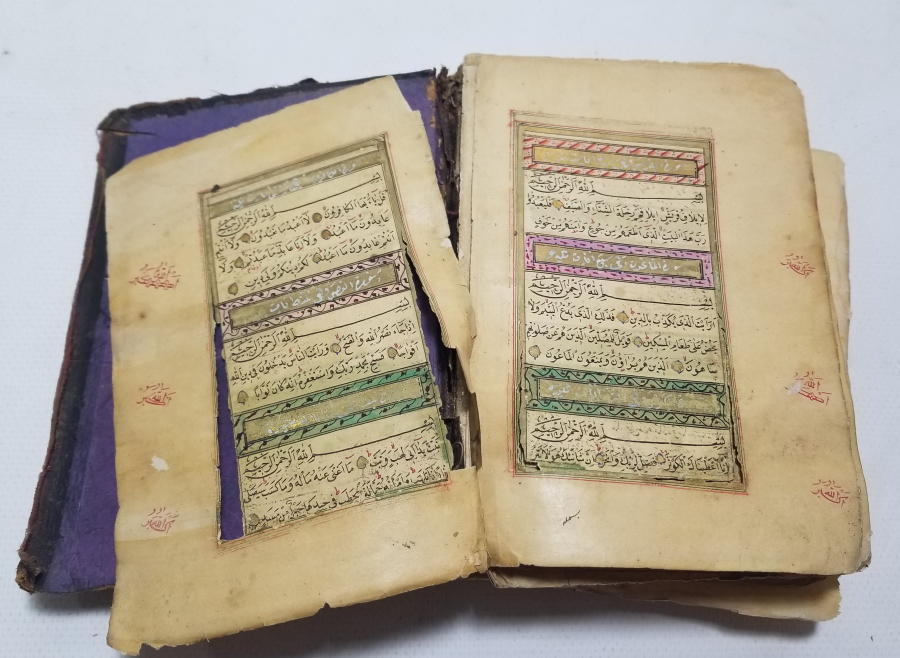 بسم الله الرحمن الرحيم
لايلاف قريش ايلافهم رحلة الشتاء والصيف فليعبدوا
رب هذا البيت الذى اطعمهم من جوع وامنهم من خوف
سورة الماعون
بسم الله الرحمن الرحيم
ارايت الذى يكذب بالدين فذلك الذى يدع اليتيم ولا
يحض على طعام المسكين فويل للمصلين الذين هم عن صلوتهم
ساهون الذين هم يراؤن ويمنعون الماعون
بسم الله الرحمن الرحيم
انا اعطيناك الكوثر فصل لربك وانحر ان شانئك هو الابتر
بسم الله الرحمن الرحيم
قل يا ايها الكافرون لا اعبد ما تعبدون ولا انتم
عابدون ما اعبد ولا انا عابد ما عبدتم ولا
انتم عابدون ما اعبد لكم دينكم ولى دين
سورة النصر
بسم الله الرحمن الرحيم
اذا جاء نصر الله والفتح ورايت الناس يدخلون فى دين الله
افواجا فسبح بحمد ربك واستغفره انه كان توابا
بسم الله الرحمن الرحيم
تبت يدا ابى لهب وتب ما اغنى عنه ماله وما كسب سيصلى
نارا ذات لهب وامراته حمالة الحطب فى جيدها حبل من مسد